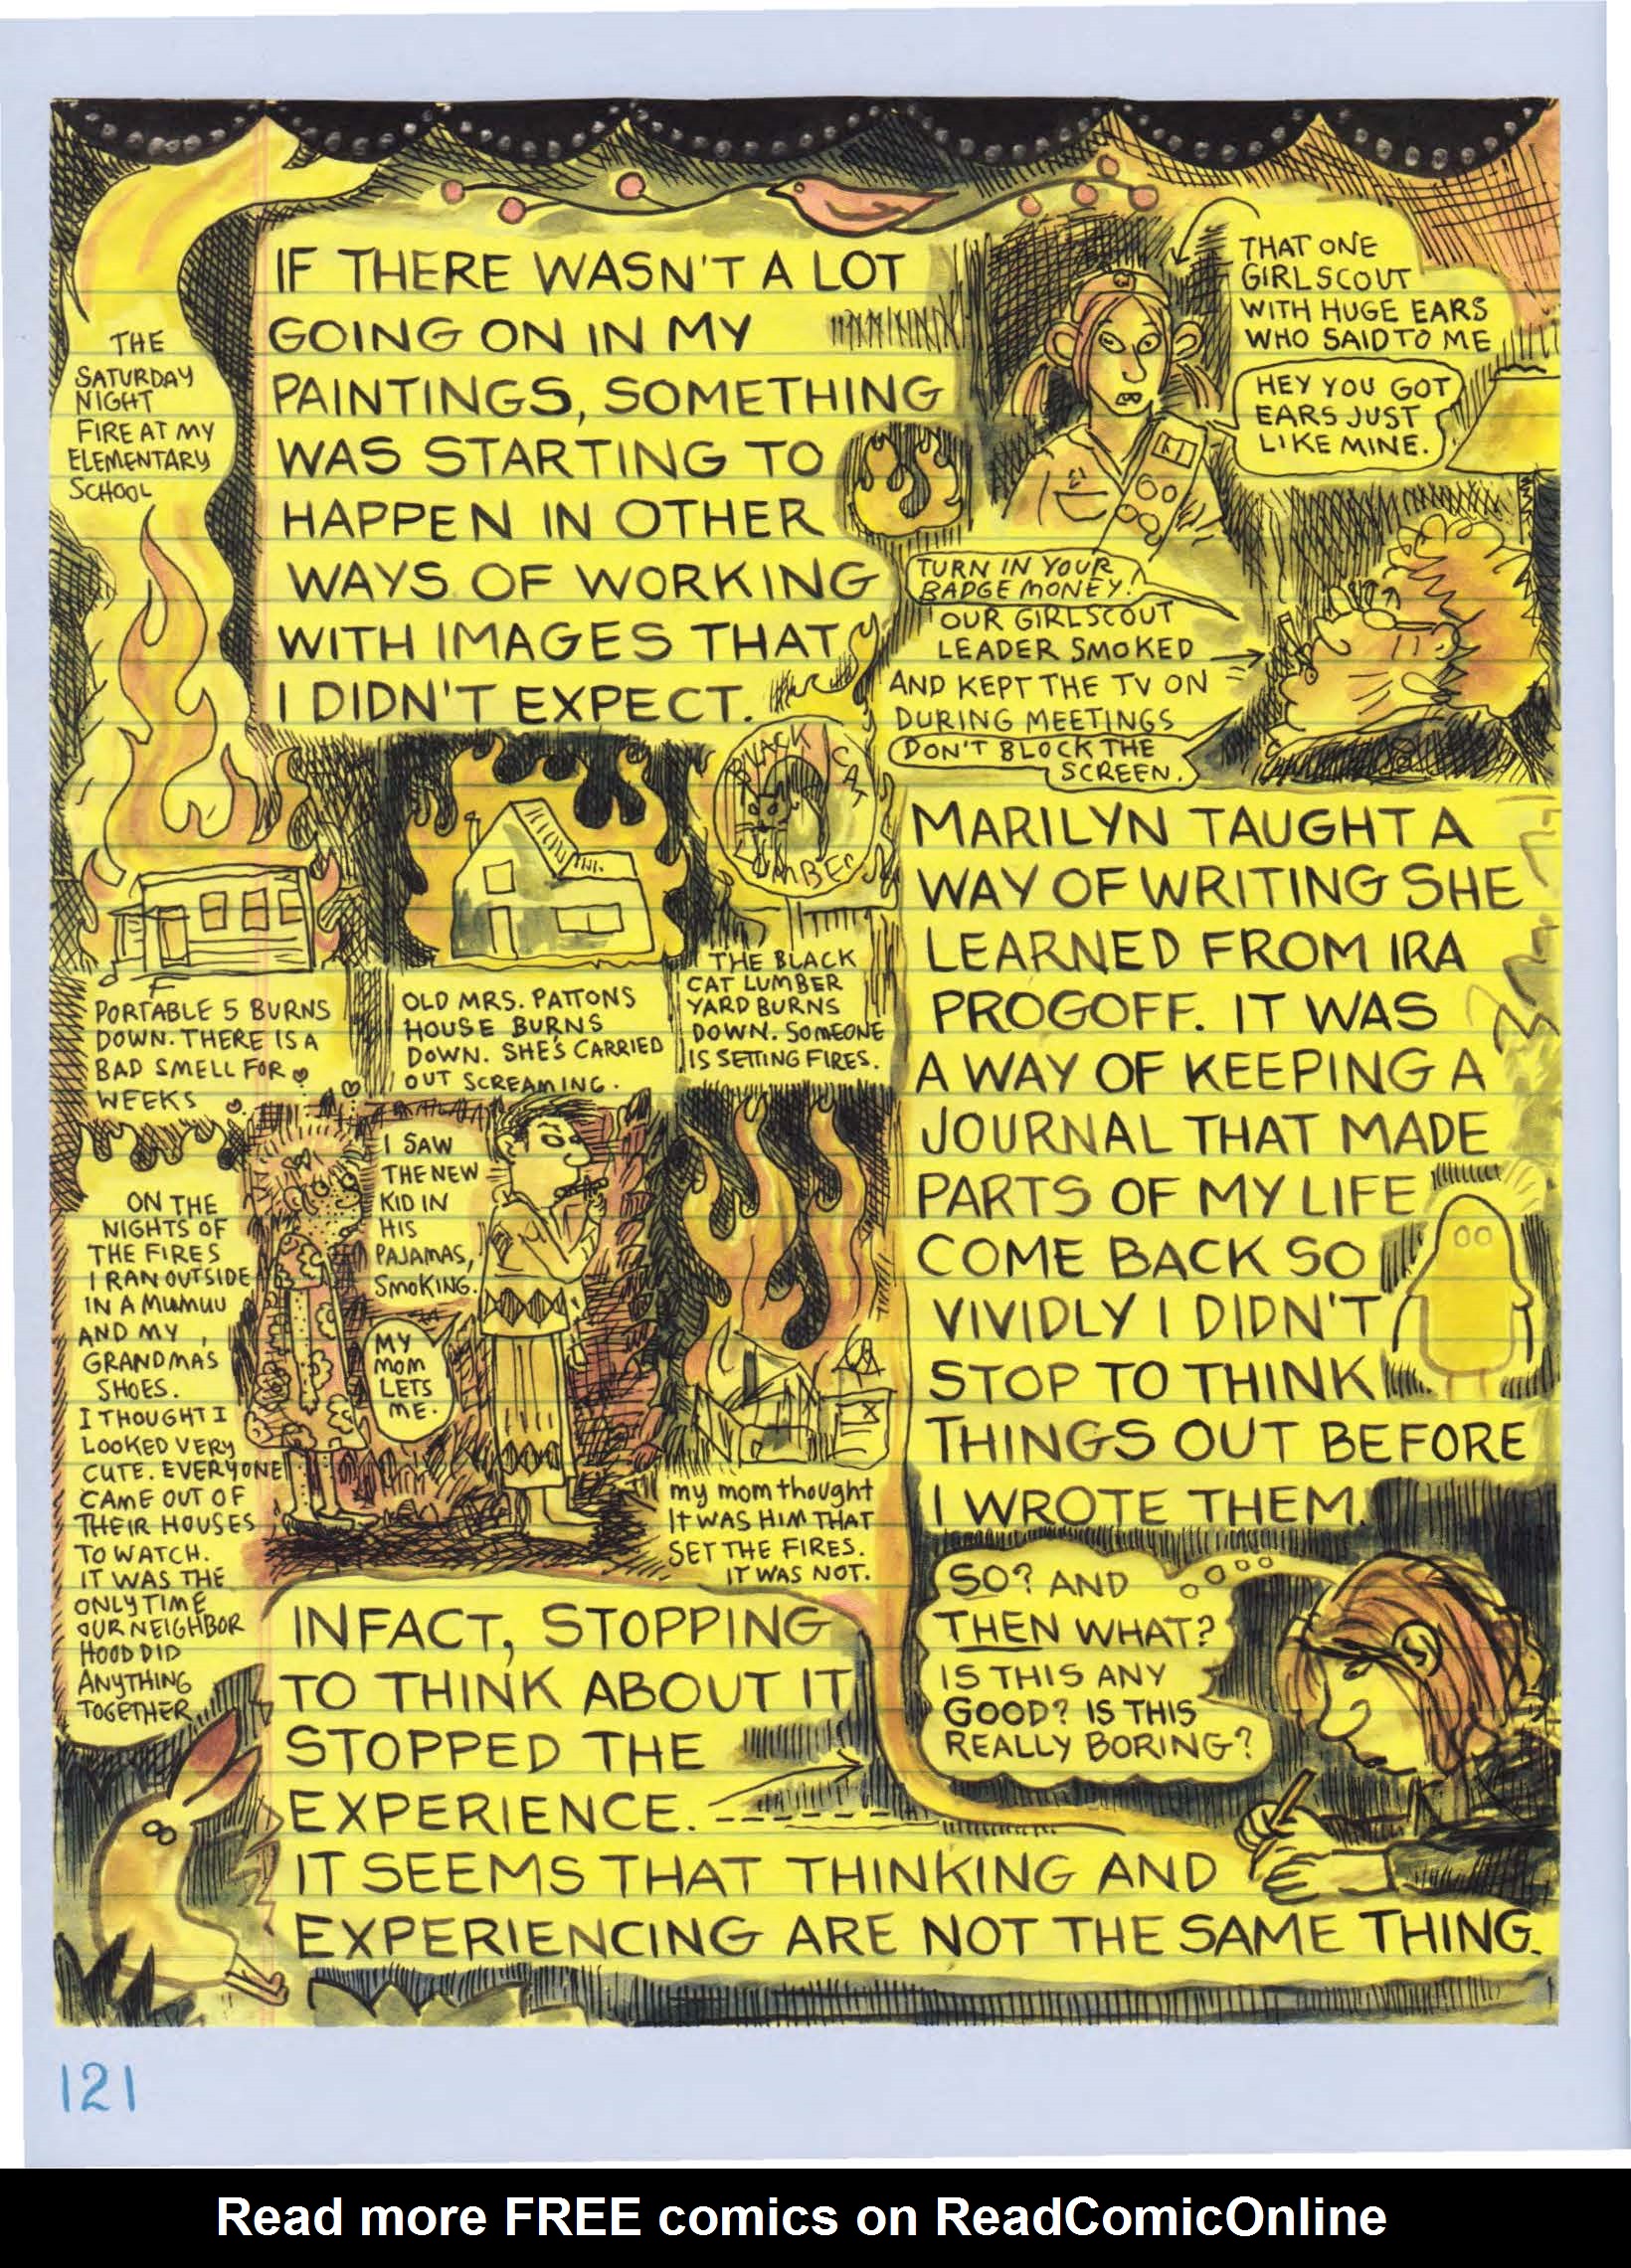 IF THERE WASN'T A LOT
GOING ON IN MY
PAINTINGS, SOMETHING
WAS STARTING TO
HAPPEN IN OTHER
WAYS OF WORKING
WITH IMAGES THAT
I DIDN'T EXPECT.
THAT ONE
GIRLSCOUT
WITH HUGE EARS
WHO SAID TO ME
HEY YOU GOT
EARS JUST
LIKE MINE.
TURN IN YOUR
BADGE MONEY!
OUR GIRLSCOUT
LEADER SMOKED
AND KEPT THE TV ON
DURING MEETINGS
DON'T BLOCK THE
SCREEN.
THE
SATURDAY
NIGHT
FIRE AT MY
ELEMENTARY
SCHOOL
PORTABLE 5 BURNS
DOWN. THERE IS A
BAD SMELL FOR
WEEKS
OLD MRS. PATTONS
HOUSE BURNS
DOWN. SHE'S CARRIED
OUT SCREAMING.
BLACK CAT
LUMBER
THE BLACK
CAT LUMBER
YARD BURNS
DOWN. SOMEONE
IS SETTING FIRES.
ON THE
NIGHTS OF
THE FIRES
I RAN OUTSIDE
IN A MUMUU
AND MY
GRANDMA'S
SHOES.
I THOUGHT I
LOOKED VERY
CUTE. EVERYONE
CAME OUT OF
THEIR HOUSES
TO WATCH.
IT WAS THE
ONLY TIME
OUR NEIGHBOR
HOOD DID
ANYTHING
TOGETHER
I SAW
THE NEW
KID IN
HIS
PAJAMAS,
SMOKING.
MY
MOM
LETS
ME.
my mom thought
IT WAS HIM THAT
SET THE FIRES.
IT WAS NOT.
MARILYN TAUGHT A
WAY OF WRITING SHE
LEARNED FROM IRA
PROGOFF. IT WAS
A WAY OF KEEPING A
JOURNAL THAT MADE
PARTS OF MY LIFE
COME BACK SO
VIVIDLY I DIDN'T
STOP TO THINK
THINGS OUT BEFORE
I WROTE THEM.
SO? AND
THEN WHAT?
IS THIS ANY
GOOD? IS THIS
REALLY BORING?
INFACT, STOPPING
TO THINK ABOUT IT
STOPPED THE
EXPERIENCE.
IT SEEMS THAT THINKING AND
EXPERIENCING ARE NOT THE SAME THING.
121
Read more FREE comics on ReadComicOnline